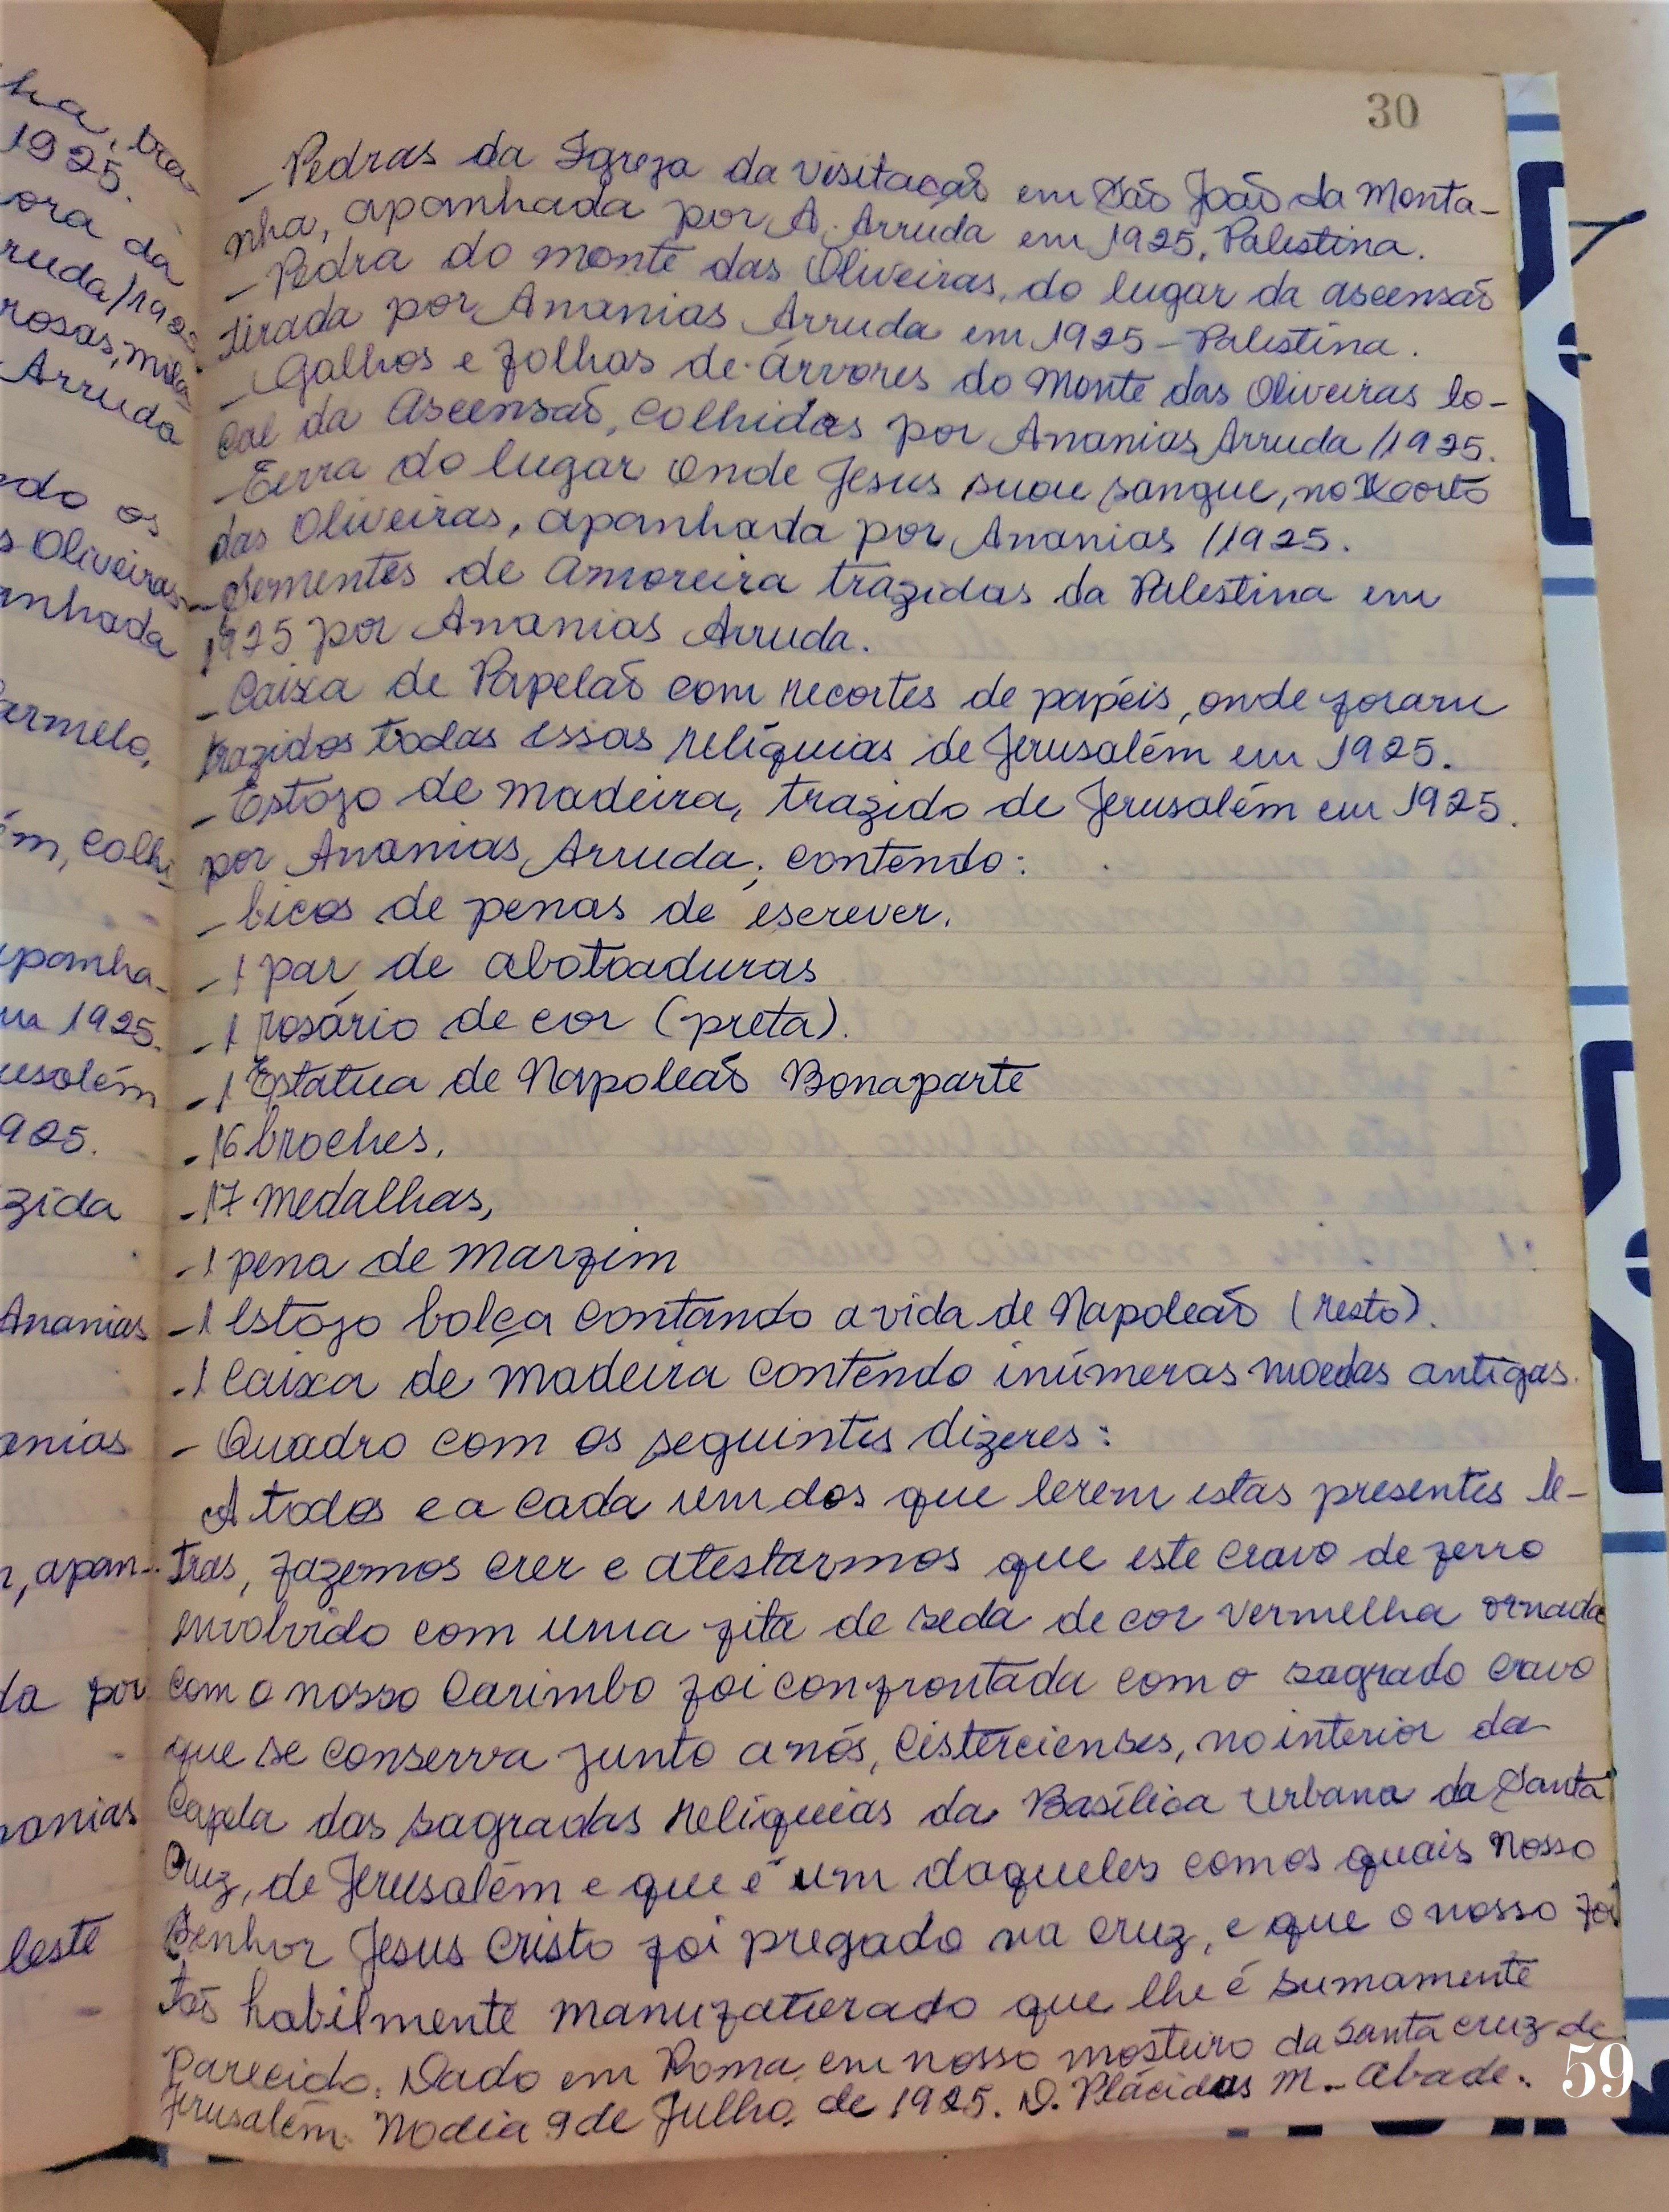 ha, tra-
1925.
ora da
ruda/1925
rosas, mila-
Arruda
edo os
s Oliveiras
anhada
armelo,
ém, colhi-
apanha-
em 1925.
usalém
925.
zida
Ananias
anias
m, apan-
da por
nanias
leste
30
_ Pedras da Igreja da visitação em São João da Monta-
nha, apanhada por A. Arruda em 1925, Palestina.
_ Pedra do monte das Oliveiras, do lugar da ascensão
tirada por Ananias Arruda em 1925 - Palestina.
_ Galhos e folhas de árvores do Monte das Oliveiras lo-
cal da Ascensão, colhidas por Ananias Arruda /1925.
- Terra do lugar onde Jesus suou sangue, no Horto
das Oliveiras, apanhada por Ananias /1925.
- Sementes de Amoreira trazidas da Palestina em
1925 por Ananias Arruda.
_ Caixa de Papelão com recortes de papéis, onde foram
trazidos todas essas relíquias de Jerusalém em 1925.
_ Estojo de madeira, trazido de Jerusalém em 1925.
por Ananias Arruda; contendo:
_ bicos de penas de escrever.
- 1 par de abotoaduras
- 1 rosário de cor (preta).
- 1 Estátua de Napoleão Bonaparte
- 16 broches,
- 17 medalhas,
- 1 pena de marfim
- 1 Estojo bolça contando a vida de Napoleão (resto).
- 1 Caixa de madeira contendo inúmeras moedas antigas.
- Quadro com os seguintes dizeres:
A todos e a cada um dos que lerem estas presentes le-
tras, fazemos crer e atestarmos que este cravo de ferro
involvido com uma fita de seda de cor vermelha ornada
com o nosso Carimbo foi confrontada com o sagrado cravo
que se conserva junto a nós, Cistercienses, no interior da
Capela das sagradas relíquias da Basílica Urbana da Santa
Cruz, de Jerusalém e que é um daqueles com os quais Nosso
Senhor Jesus Cristo foi pregado na cruz, e que o nosso foi
tão habilmente manufaturado que lhe é sumamente
parecido. Dado em Roma, em nosso mosteiro da Santa cruz de
Jerusalém. No dia 9 de Julho de 1925. D. Plácidus M. - Abade.
59